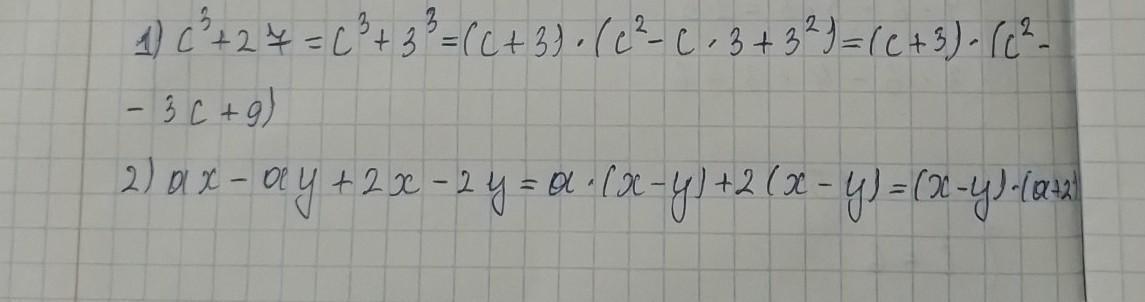 1) c³+27=c³+3³=(c+3)·(c²-c·3+3²)=(c+3)·(c²-
- 3c+9)
2) ax-ay+2x-2y=a·(x-y)+2(x-y)=(x-y)·(a+2)